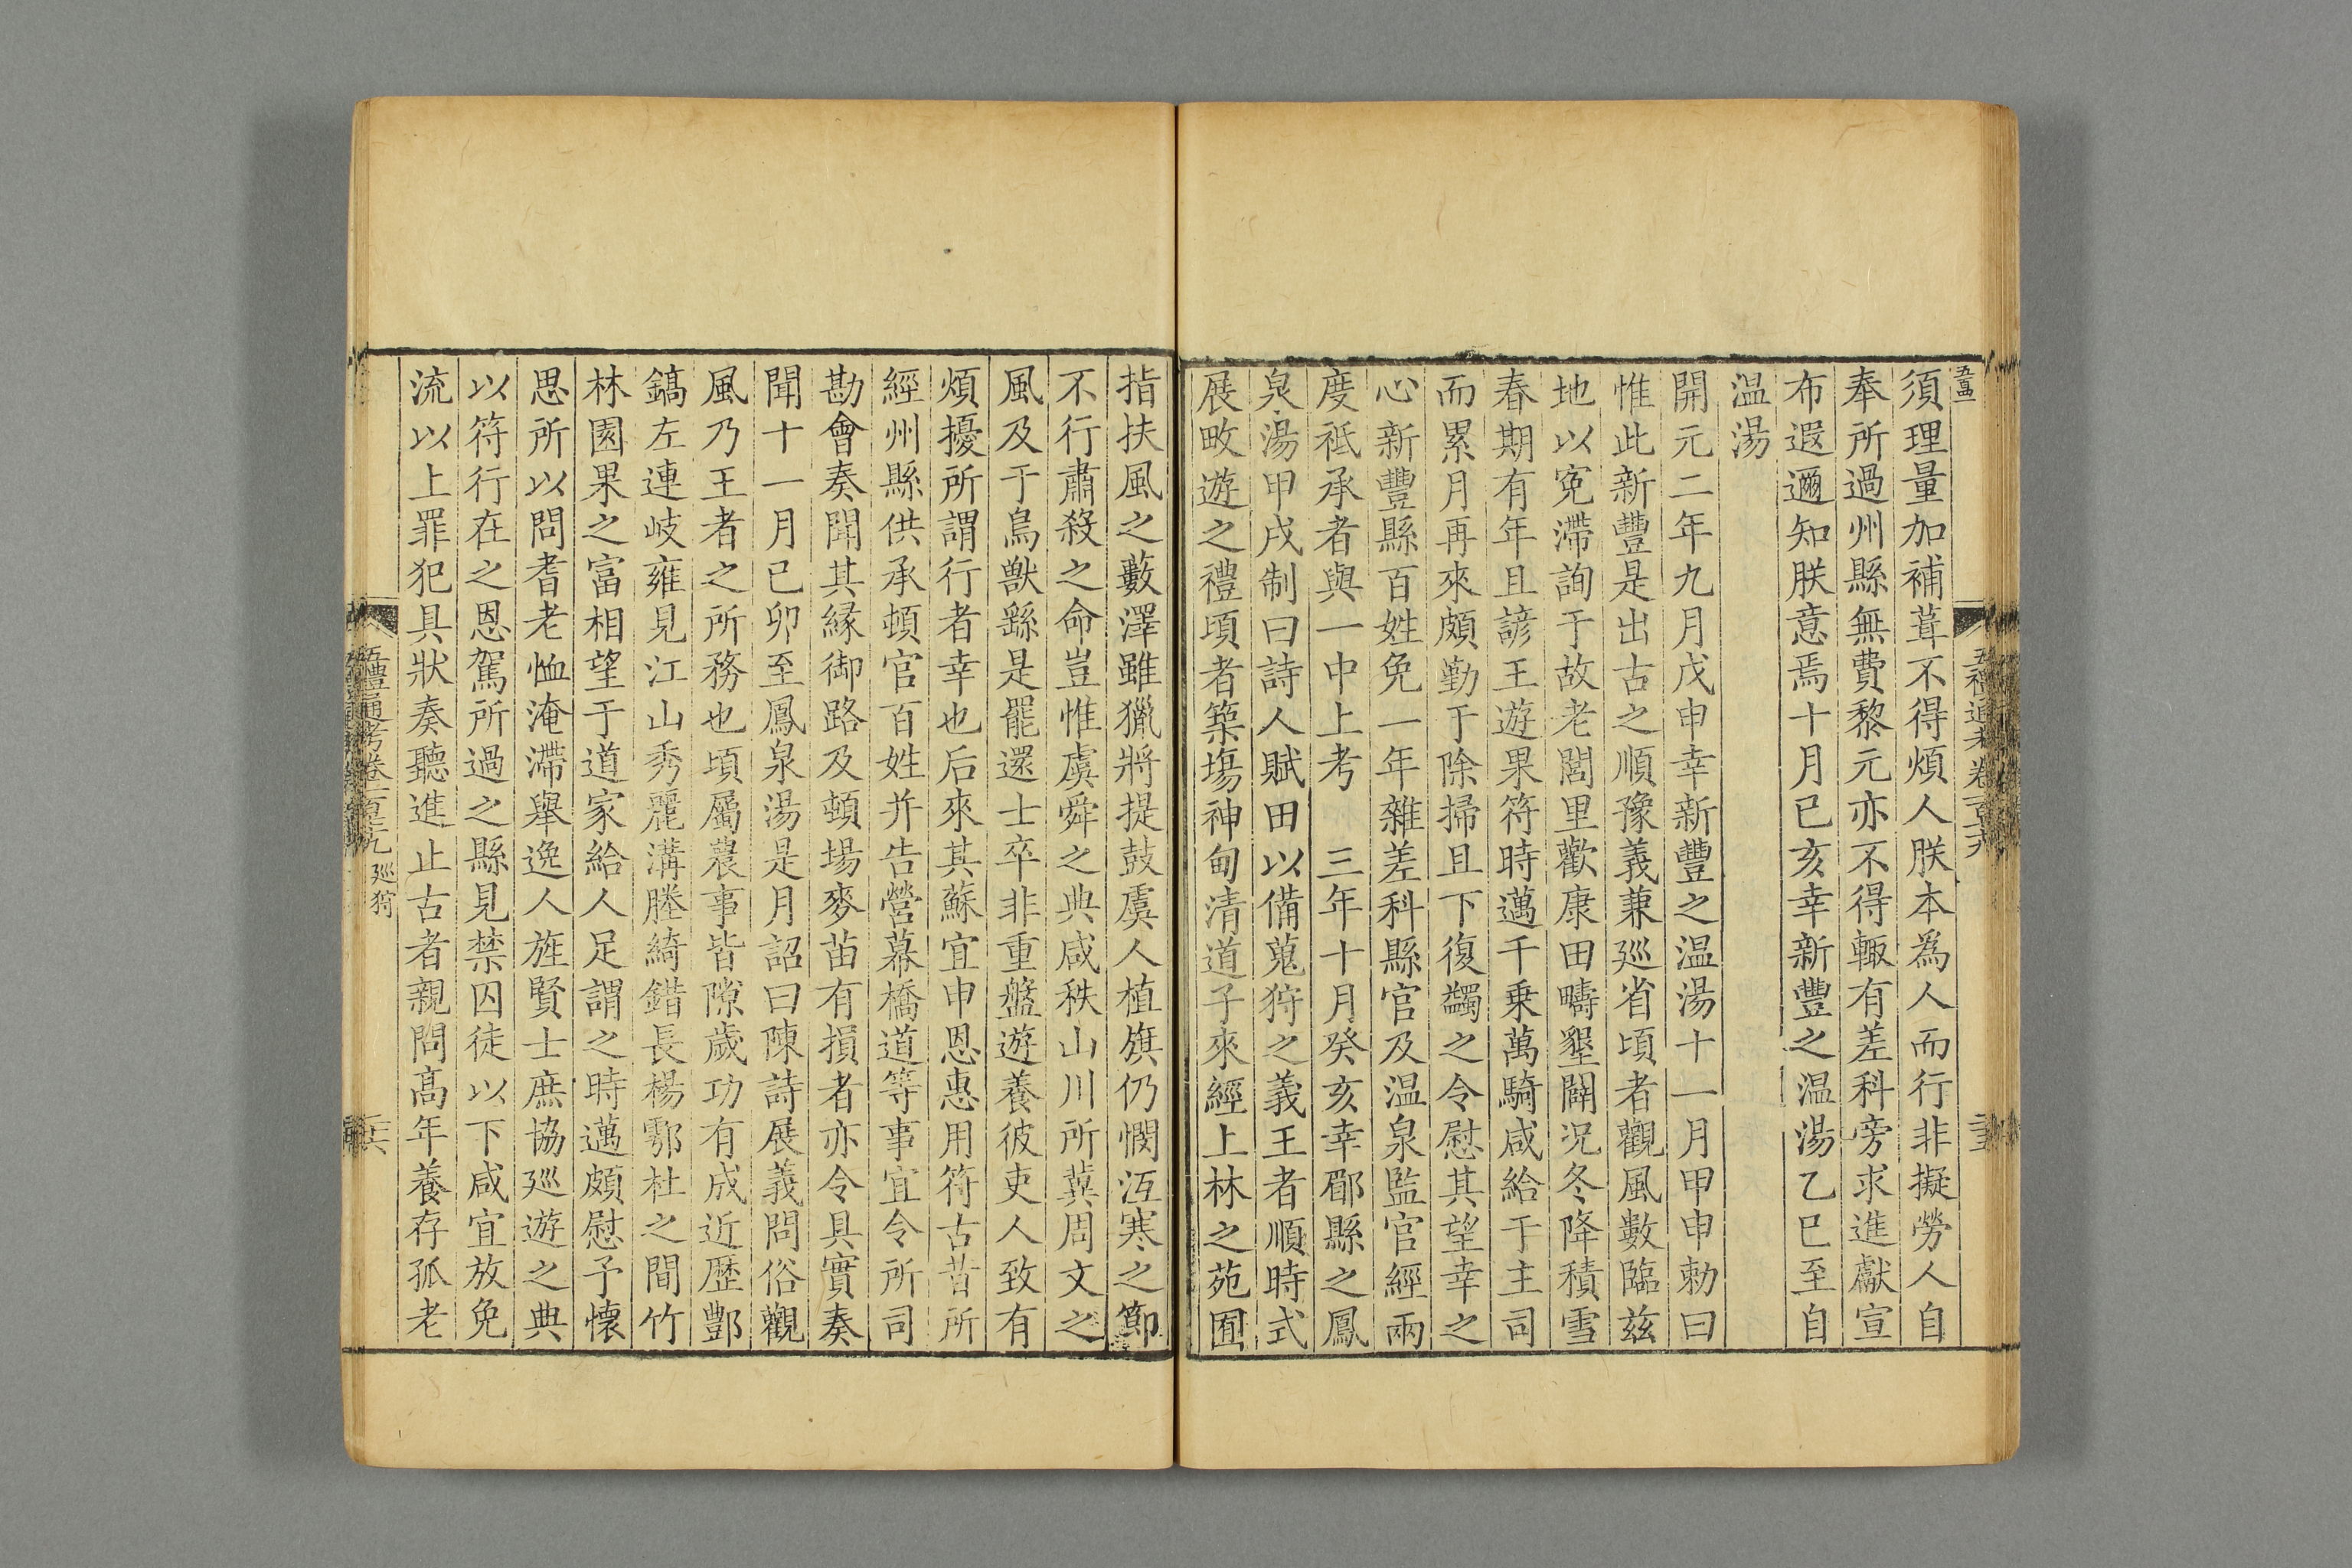 須理量加補葺不得煩人朕本為人而行非擬勞人自
奉所過州縣無費黎元亦不得輙有差科旁求進獻宣
布遐邇知朕意焉十月已亥幸新豐之温湯乙巳至自
温湯
開元二年九月戊申幸新豐之温湯十一月甲申勅曰
惟此新豐是出古之順豫義兼廵省頃者觀風數臨兹
地以寃滯詢于故老閭里歡康田疇墾闢况冬降積雪
春期有年且諺王遊果符時邁千乗萬騎咸給于主司
而累月再來頗勤于除掃且下復蠲之令慰其望幸之
心新豐縣百姓免一年雜差科縣官及温泉監官經兩
度祗承者與一中上考　三年十月癸亥幸郿縣之鳳
泉湯甲戌制曰詩人賦田以備蒐狩之義王者順時式
展畋遊之禮頃者築塲神甸清道子來經上林之苑囿
指扶風之藪澤雖獵將提鼓虞人植旗仍憫沍寒之節
不行肅殺之命豈惟虞舜之典咸秩山川所冀周文之
風及于鳥獸繇是罷還士卒非重盤遊養彼吏人致有
煩擾所謂行者幸也后來其蘇宜申恩惠用符古昔所
經州縣供承頓官百姓并告營幕橋道等事宜令所司
勘會奏聞其緣御路及頓場麥苗有損者亦令具實奏
聞十一月已卯至鳳泉湯是月詔曰陳詩展義問俗觀
風乃王者之所務也頃屬農事皆隙歲功有成近歷酆
鎬左連岐雍見江山秀麗溝塍綺錯長楊鄠杜之間竹
林園果之富相望于道家給人足謂之時邁頗慰予懷
思所以問耆老恤淹滯舉逸人旌賢士庶協廵遊之典
以符行在之恩駕所過之縣見禁囚徒以下咸宜放免
流以上罪犯具狀奏聽進止古者親問高年養存孤老
五禮通考卷一百七十九 廵狩